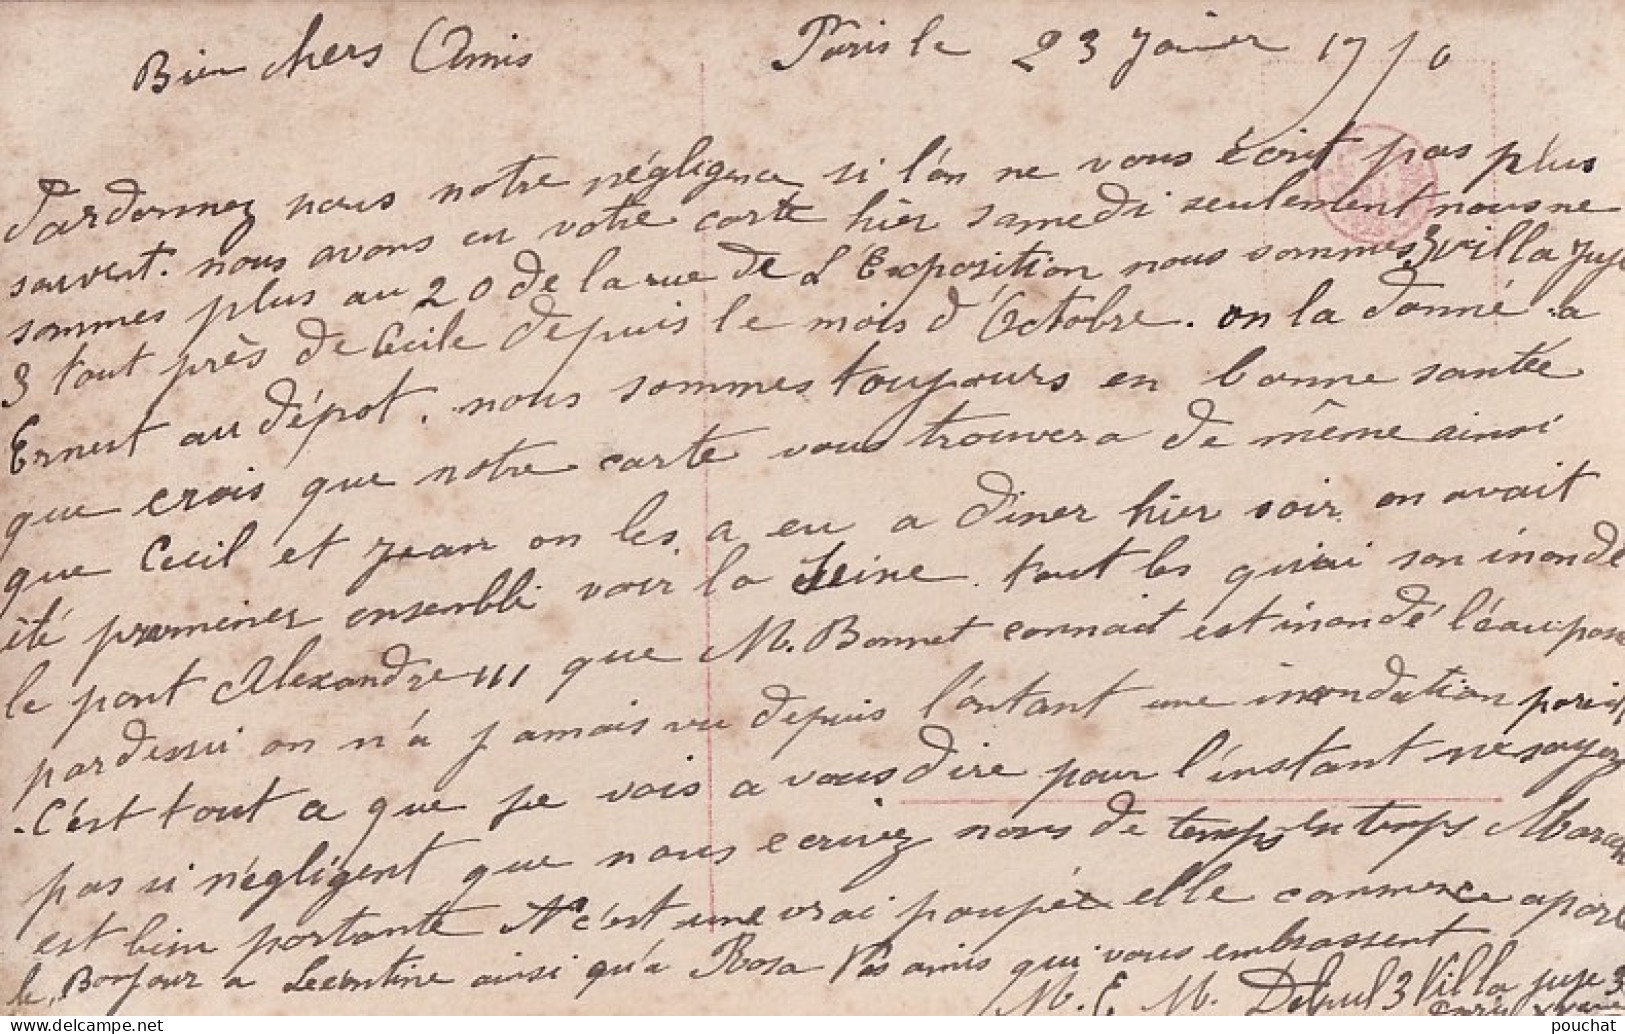 Bien chers Amis Paris le 23 Janvier 1910
Pardonnez nous notre négligence si l'on ne vous écrit pas plus
souvent. nous avons eu votre carte hier samedi seulement nous ne
sommes plus au 20 de la rue de L'Exposition nous sommes 3 villa Juge
3 tout près de Cécile depuis le mois d'Octobre. on la donné a
Ernest au dépot. nous sommes toujours en bonne santée
que crois que notre carte vous trouvera de même ainsi
que Cecil et Jean on les a eu a diner hier soir on avait
été prominer ensemble voir la Seine. tout les quai son inondé
le pont Alexandre III que M. Bonnet connait est inondé l'éau passe
pardessu on n'a jamais vu depuis l'ontant une inondation pareil
. C'est tout a que je vois a vous dire pour l'instant ne soyez
pas si négligent que nous ecrivez nous de temps en temps
est bien portante c'est une vrai poupée elle commence a parl
le Bonjour a Leontine ainsi qu'a Rosa Vos amis qui vous embrassent
M. E. M. 3 Villa Juge 3
pouchat